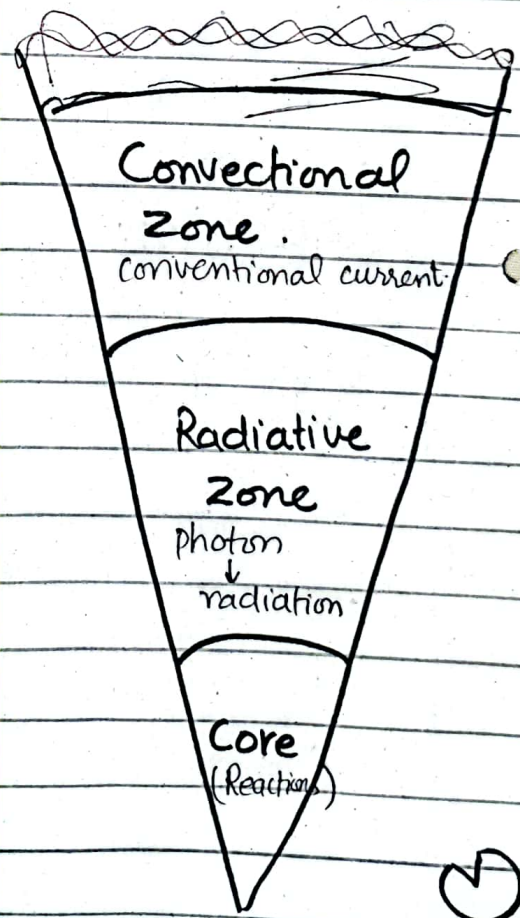 Convectional
Zone.
conventional current.
Radiative
Zone
photon
↓
radiation
Core
(Reactions)